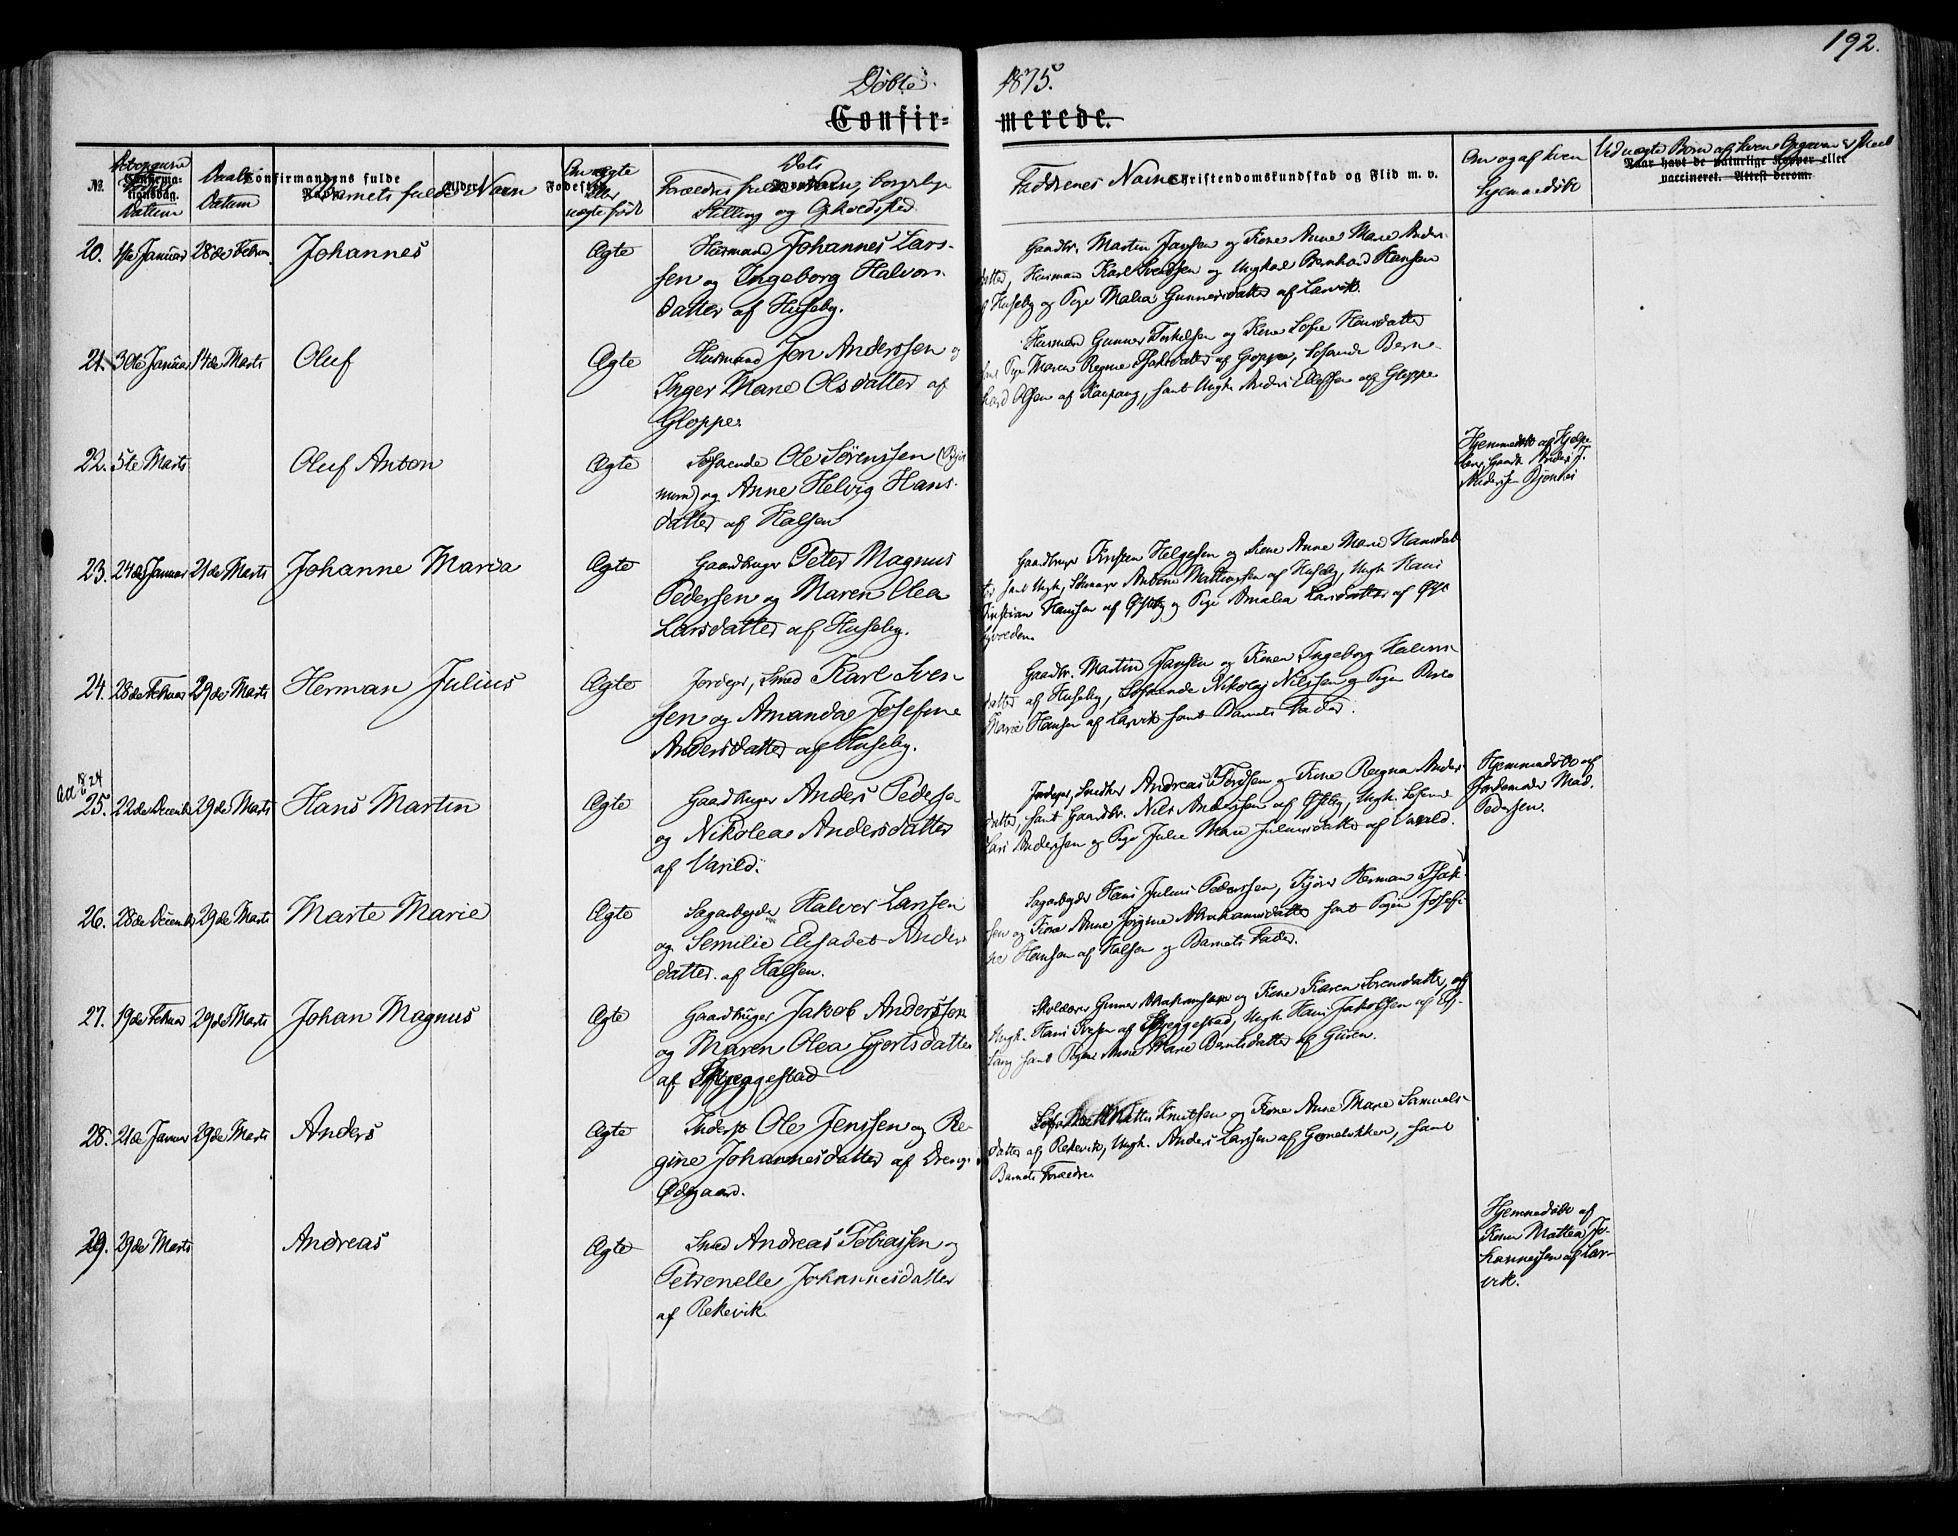 192.
Døbte 1875.
Confirmerede.
No. Datum Daabs Datum Barnets fulde Navn Om ægte eller uægte født Forældres fulde Navn, Stilling og Opholdsted Faddernes Navne Om og af hvem hjemmedøbt
Confirmandens fulde
Alder
Christendomskundskab og Flid m. v.
Naar havt de naturlige Kopper eller
vaccineret. Attest derom.
20. 1ste Januar 28de Februar Johannes Ægte Husmand Johannes Lars-
sen og Ingeborg Halvors-
datter af Huseby.
Gaardbr. Martin Jansen og Kone Anne Marie Anders-
datter, Husmand Karl Svendsen og Ungkal Bernhard Hansen
af Huseby og Pige Malea Gunnersdatter af Larvik.
21. 30te Januar 14de Marts Oluf Ægte Husmand Jon Anderssen og
Inger Marie Olsdatter af
Gloppe.
Husmand Gunner Terkelsen og Kone Sofie Hansdatter
Pige Maren Regine Isaksdatter af Gloppe, Løsænde Bern-
hard Olsen af Kaupang, samt Ungk. Anders Ellefsen af Gloppe
22. 5te Marts Oluf Anton Ægte Ole Sørenssen
og Anne Helvig Hans-
datter af Halsen
Hjemmedøbt af
23. 24de Januar 21de Marts Johanne Maria Ægte Gaardbruger Peter Magnus
Pedersen og Maren Olea
Larsdatter af Huseby.
Gaardbruger Kristen Helgesen og Kone Anne Marie Hansdat-
ter samt Ungk. Anton Mathiassen af Huseby, Ungk. Hans
Kristian Hanssen af Østby og Pige Amalea Larsdatter af
24. 28de Februar 29de Marts Herman Julius Ægte Jordejer, Smed Karl Sven-
sen og Amanda Josefine
Andersdatter af Huseby.
Gaardbr. Martin Jansen og Konen Ingeborg Halvors-
datter af Huseby, Nikolaj Nilssen og Pige
Marie Hansen af Larvik samt Barnets Fader.
25. 22de Decemb 29de Marts Hans Martin Ægte Gaardbruger Anders Peders-
og Nikolea Andersdatter
af Varild.
Jordejer, Snedker Andreas Tordsen og Kone Regina Anders-
datter, samt Gaardbr. Nils Anderssen af Østby, Ungk.
Lars Anderssen og Pige Julie Marie Juliusdatter af Varild.
Hjemmedøbt af
Jordemoder Mad.
Pedersen.
26. 28de Decemb 29de Marts Marte Marie Ægte Sagarbejder Halver Larsen
og Semilie Elisabet Anders-
datter af Halsen.
Sagarbejder Hans Julius Pederssen, Herman Isak-
sen og Kone Anne Jørgine Abrahamsdatter samt Pigen Josefi-
ne Hansen af Halsen og Barnets Fader.
27. 19de Februar 29de Marts Johan Magnus Ægte Gaardbruger Jakob Anderssen
og Maren Olea Gjertsdatter
af Skjeggestad
Skolelærer Gunner Abrahamsen og Kone Karen Sørensdatter, og
Ungk. Hans Iversen af Skjeggestad, Ungk. Hans Jakobsen af
samt Pigen Anne Marie Berntsdatter af Guren.
28. 21de Januar 29de Marts Anders Ægte Inderst Ole Jenssen og Re-
gine Johannesdatter af Dreng
Ødegaard.
Mattis Knutsen og Kone Anne Marie Samuels-
datter af Rekevik, Ungk. Anders Larssen af Gonelokken, samt
Barnets Forældre
29. 29de Marts Andreas Ægte Smed Andreas Tobiassen og
Petronelle Johannesdatter
af Rekevik
Hjemmedøbt af
Konen Mattea Jo-
hannessen af Lar-
vik.